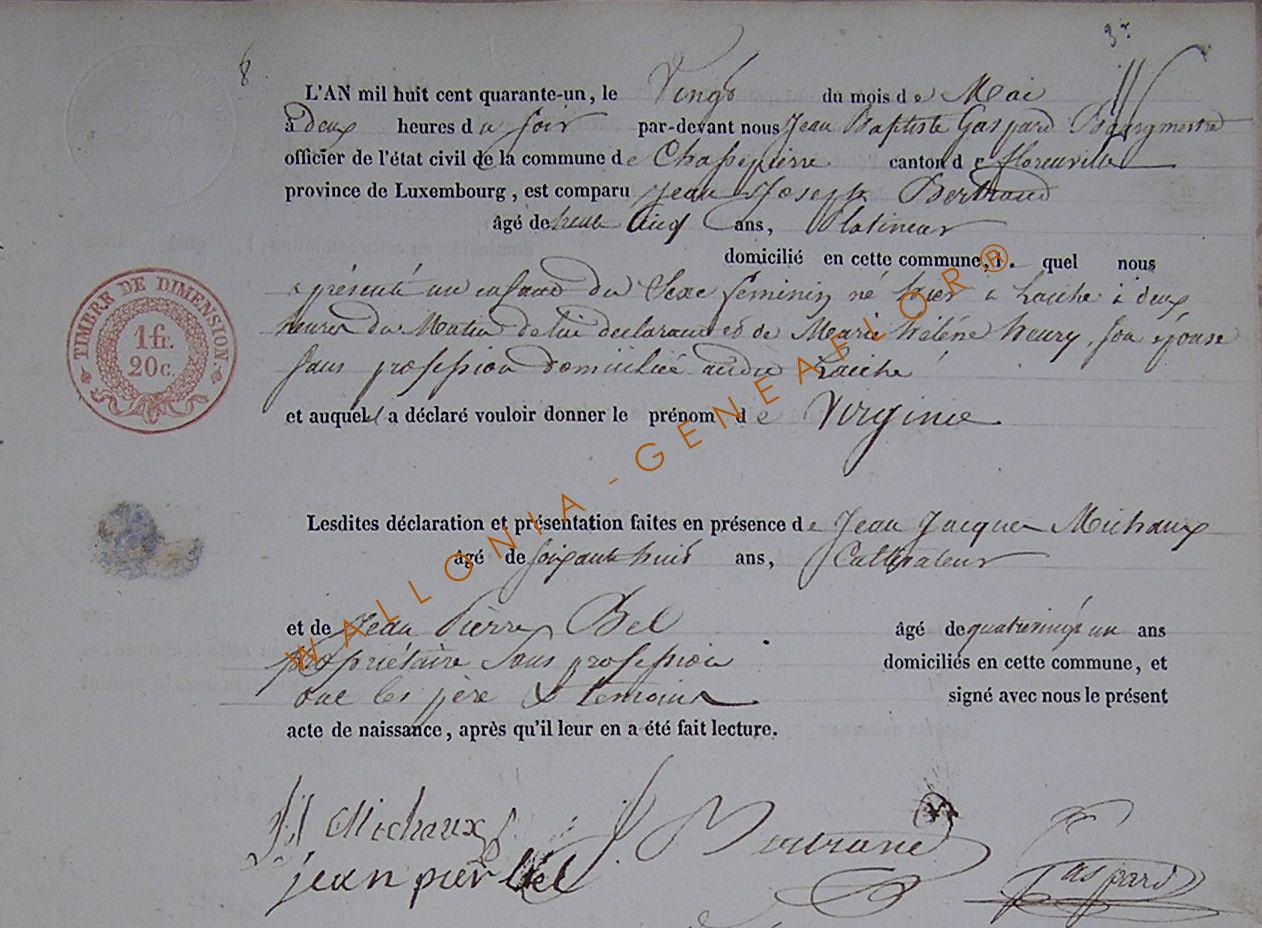 8
3
L'AN mil huit cent quarante-un, le Vingt du mois de Mai
à deux heures du soir par-devant nous Jean Baptiste Gaspard Bourgmestre
officier de l'état civil de la commune de Chassepierre canton de florenville
province de Luxembourg, est comparu Jean Joseph Bertrand
âgé de trente cinq ans, Platineur
domicilié en cette commune, quel nous
a présenté un enfant du Sexe feminin né hier à Laiche à deux
heures du Matin de lui déclarant et de Marie hélène henry, son épouse
sans profession domiciliée audit Laiche
et auquel a déclaré vouloir donner le prénom de Virginie
Lesdites déclaration et présentation faites en présence de Jean Jacques Michaux
âgé de soixante huit ans, Cultivateur
et de Jean Pierre Bel âgé de un ans
propriétaire sans profession domiciliés en cette commune, et
ont les père & temoins signé avec nous le présent
acte de naissance, après qu'il leur en a été fait lecture.
TIMBRE DE DIMENSION.
1 fr.
20 c.
WALLONIA - GENEAFLOR®
JJ Michaux
J Bertrand
jean pier bel
Gaspard